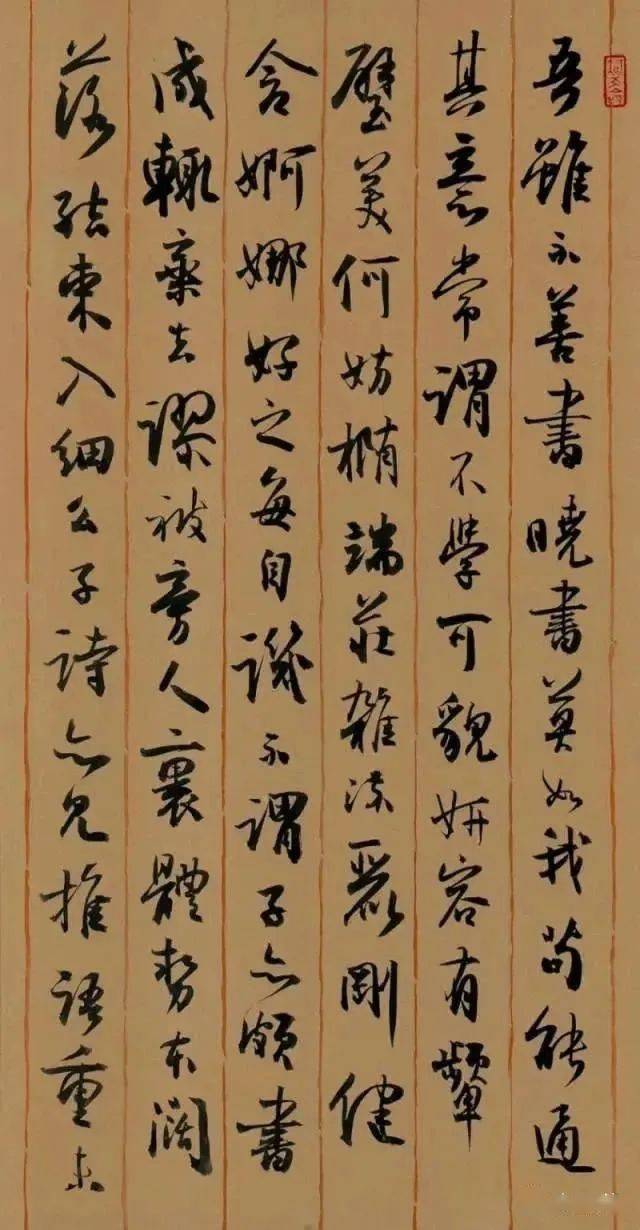 吾雖不善書曉書莫如我苟能通
其意常謂不學可貌妍容有顰
璧美何妨橢端莊雜流麗剛健
含婀娜好之每自譏不謂子亦頗書
成輒棄去謬被旁人裹體勢本闊
落結束入細么子詩亦見推語重未